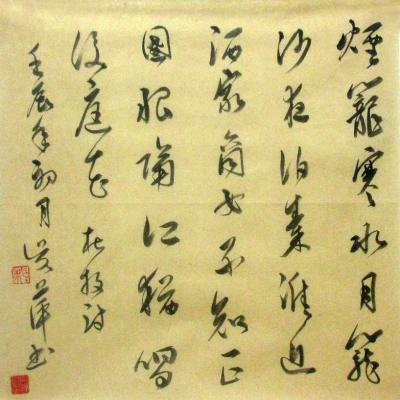 煙籠寒水月籠
沙夜泊秦淮近
酒家商女不知亡
國恨隔江猶唱
後庭花 杜牧詩
壬辰年初月吳萍書